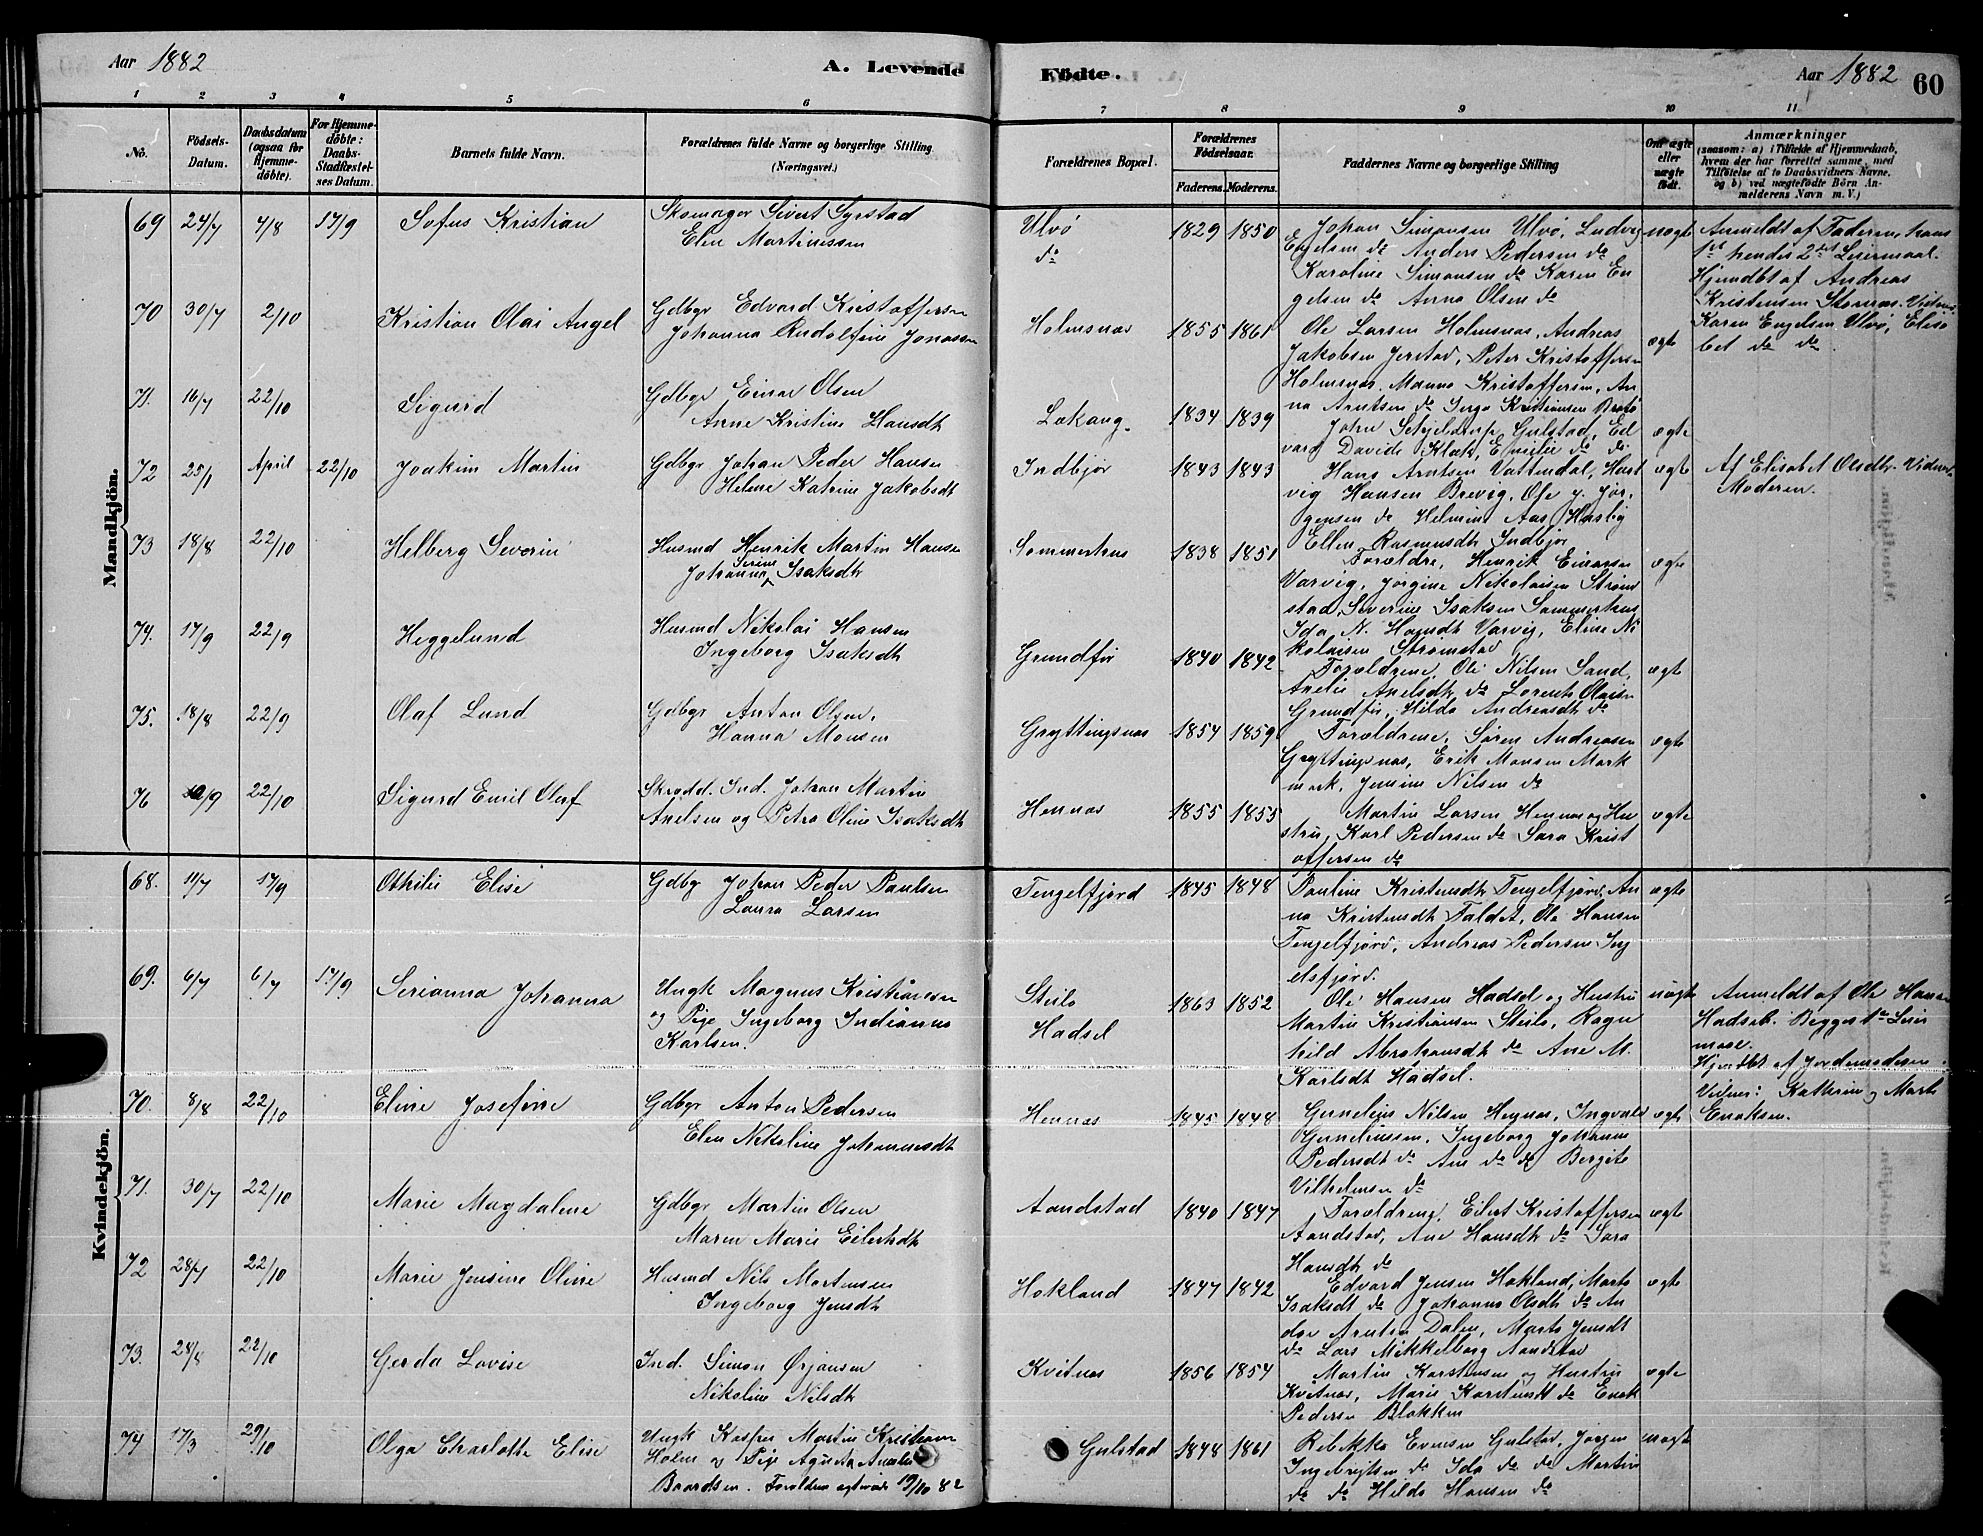 Aar 1882
A. Levende
Födte.
Aar 1882
60
1 2 3 4 5 6 7 8 9 10 11
No.
Födsels-Datum.
Daabsdatum (ogsaa for Hjemme-döbte).
For Hjemme-döbte: Daabs-Stadfæstel-ses Datum.
Barnets fulde Navn.
Forældrenes fulde Navne og borgerlige Stilling
(Næringsvei.)
Forældrenes Bopæl.
Forældrenes Födselsaar.
Faderens. Moderens.
Faddernes Navne og borgerlige Stilling
Om ægte eller uægte födt.
Anmærkninger
(saasom: a) i Tilfælde af Hjemmedaab, hvem der har forrettet samme, med Tilföielse af to Daabsvidners Navne, og b) ved uægtefödte Börn An-melderens Navn m. V.)
Mandkjön.
69 24/7 4/8 17/9 Sofus Kristian
Skomager Sivert Syrstad
Elen Martinussen
Ulvø
do
1829 1850
Johan Simonsen Ulvø, Ludvig
Engelsen do Anders Pedersen do
Karoline Simonsen do Karen En
gelsen do Anna Olsen do
uægte
Anmeldt af Faderen, hans
1st hendes 2det Leiermaal.
Hjemdbt af Andreas
Kristensen Stornas. Vidner
Karen Engelsen Ulvø, Elisa
bet do do
70 30/7 2/10 Kristian Olai Angel
Gdbgr Edvard Kristoffersen
Johanna Rudolfine Jonassen
Holmsnas 1855 1861
Ole Larsen Holmsnas, Andreas
Jakobsen Jerstad, Peter Kristoffersen
Holmsnas, Manna Kristoffersen, An
na Arntsen do Inga Kristiansen
ægte
71. 16/7 22/10 Sigurd
Gdbgr Einar Olsen
Anne Kristine Hansdt
Lokang. 1834 1839
John Schjelderup Gulstad, Ed
vard Davids Klak, Emilie do do
ægte
72 25/1 April 22/10 Joakim Martin
Gdbgr Johan Peder Hansen
Helene Katrine Jakobsdt
Indbjør 1843 1843
Hans Arntsen Vattendal, Hart
vig Hansen Brevig, Ole J. Jør
gensen do Helmine Aas Husby
Ellen Rasmusdt Indbjør
ægte
Af Elisabet Olsdtr. Vidner
Moderen.
73 18/8 22/10 Helberg Severin
Husmd Henrik Martin Hansen
Johanna Serine Isaksdt
Sommerhus 1838 1851
Forældre, Henrik Einarsen
Varvig, Jørgine Nikolaisen Strøm
stad, Severine Isaksen Sommerhus
Ida N. Hansdt Varvig, Eline Ni
kolaisen Strømstad
ægte
74. 17/9 22/9 Heggelund
Husmd Nikolai Hansen
Ingeborg Isaksdt
Grundfør 1840 1842
Forældrene, Ole Nilsen Sand,
Axelie Axelsdt do Lorents Olaisen
Grundfør, Hilda Andreasdt do
ægte
75. 18/8 22/9 Olaf Lund
Gdbgr Anton Olsen,
Hanna Monsen
Gryttingsnas 1854 1859
Forældrene, Søren Andreasen
Gryttingsnas, Erik Monsen Mork
mork, Jensine Nilsen do
ægte
76 10/9 22/10 Sigurd Emil Olaf
Skrædd. Ind. Johan Martin
Axelsen og Petra Oline Isaksdt
Hennas 1855 1855
Martin Larsen Hennas og Hu
stru, Karl Pedersen do Sara Krist
offersen do
ægte
Kvindekjön.
68. 11/7 17/9 Othilie Elise
Gdbgr Johan Peder Paulsen
Laura Larsen
Tengelfjord 1845 1848
Pauline Kristensdt Tengelfjord, An
na Kristensdt Faldet, Ole Hansen
Tengelfjord, Andreas Pedersen Ing
elsfjord.
ægte
69. 6/7 6/7 17/9 Serianna Johanna
Ungk Magnus Kristiansen
og Pige Ingeborg Indianna
Karlsen.
Steilo
Hadsel
1863 1852
Ole Hansen Hadsel og Hustru
Martin Kristiansen Steilo, Ragn
hild Abrahamsdt do Ane M.
Karlsdt Hadsel.
uægte
Anmeldt af Ole Hansen
Hadsel. Begges 1te Leier
maal.
Hjemdbt af Jordemoderen.
Vidner: Kathrine og Marth
Enoksen.
70. 8/8 22/10 Eline Josefine
Gdbgr Anton Pedersen
Elen Nikoline Johannesdt
Hennas 1845 1848
Gornelius Nilsen Hennas, Ingvald
Gorneliussen, Ingeborg Johanne
Pedersdt do Ane do do Bergite
Vilhelmsen do
ægte
71. 30/7 22/10 Marie Magdalene
Gdbgr Martin Olsen
Maren Marie Eilertsdt
Aandstad 1840 1847
Forældrene, Eilert Kristoffersen
Aandstad, Ane Hansdt do Sara
Hansdt do
ægte
72 28/7 22/10 Marie Jensine Oline
Husmd Nils Mortensen
Ingeborg Jensdt
Hokland 1847 1842
Edvard Jensen Hokland, Marta
Isaksdt do Johanna Olsdt do An
dor Arntsen Dalen, Marta Jensdt
do Lars Mikkelborg Aandstad
ægte
73. 28/8 22/10 Gerda Lovise
Ind. Simon Ørjansen
Nikoline Nilsdt
Kvitnas 1856 1854
Martin Karstensen og Hustru
Kvitnas, Marie Karstensdt do Enok
Pedersen Blokken
ægte
74 17/3 29/10 Olga Charlotte Elise
Ungk Kasper Martin Kristiansen
Holm og Pige Agnete Amalie
Baardsen. Forældrene ægteviede 19/10 82
Gulstad 1848 1861
Rebekka Evensen Gulstad, Jørgen
Ingebrigtsen do Ida do do Martin
do do Hilda Hansen do
uægte